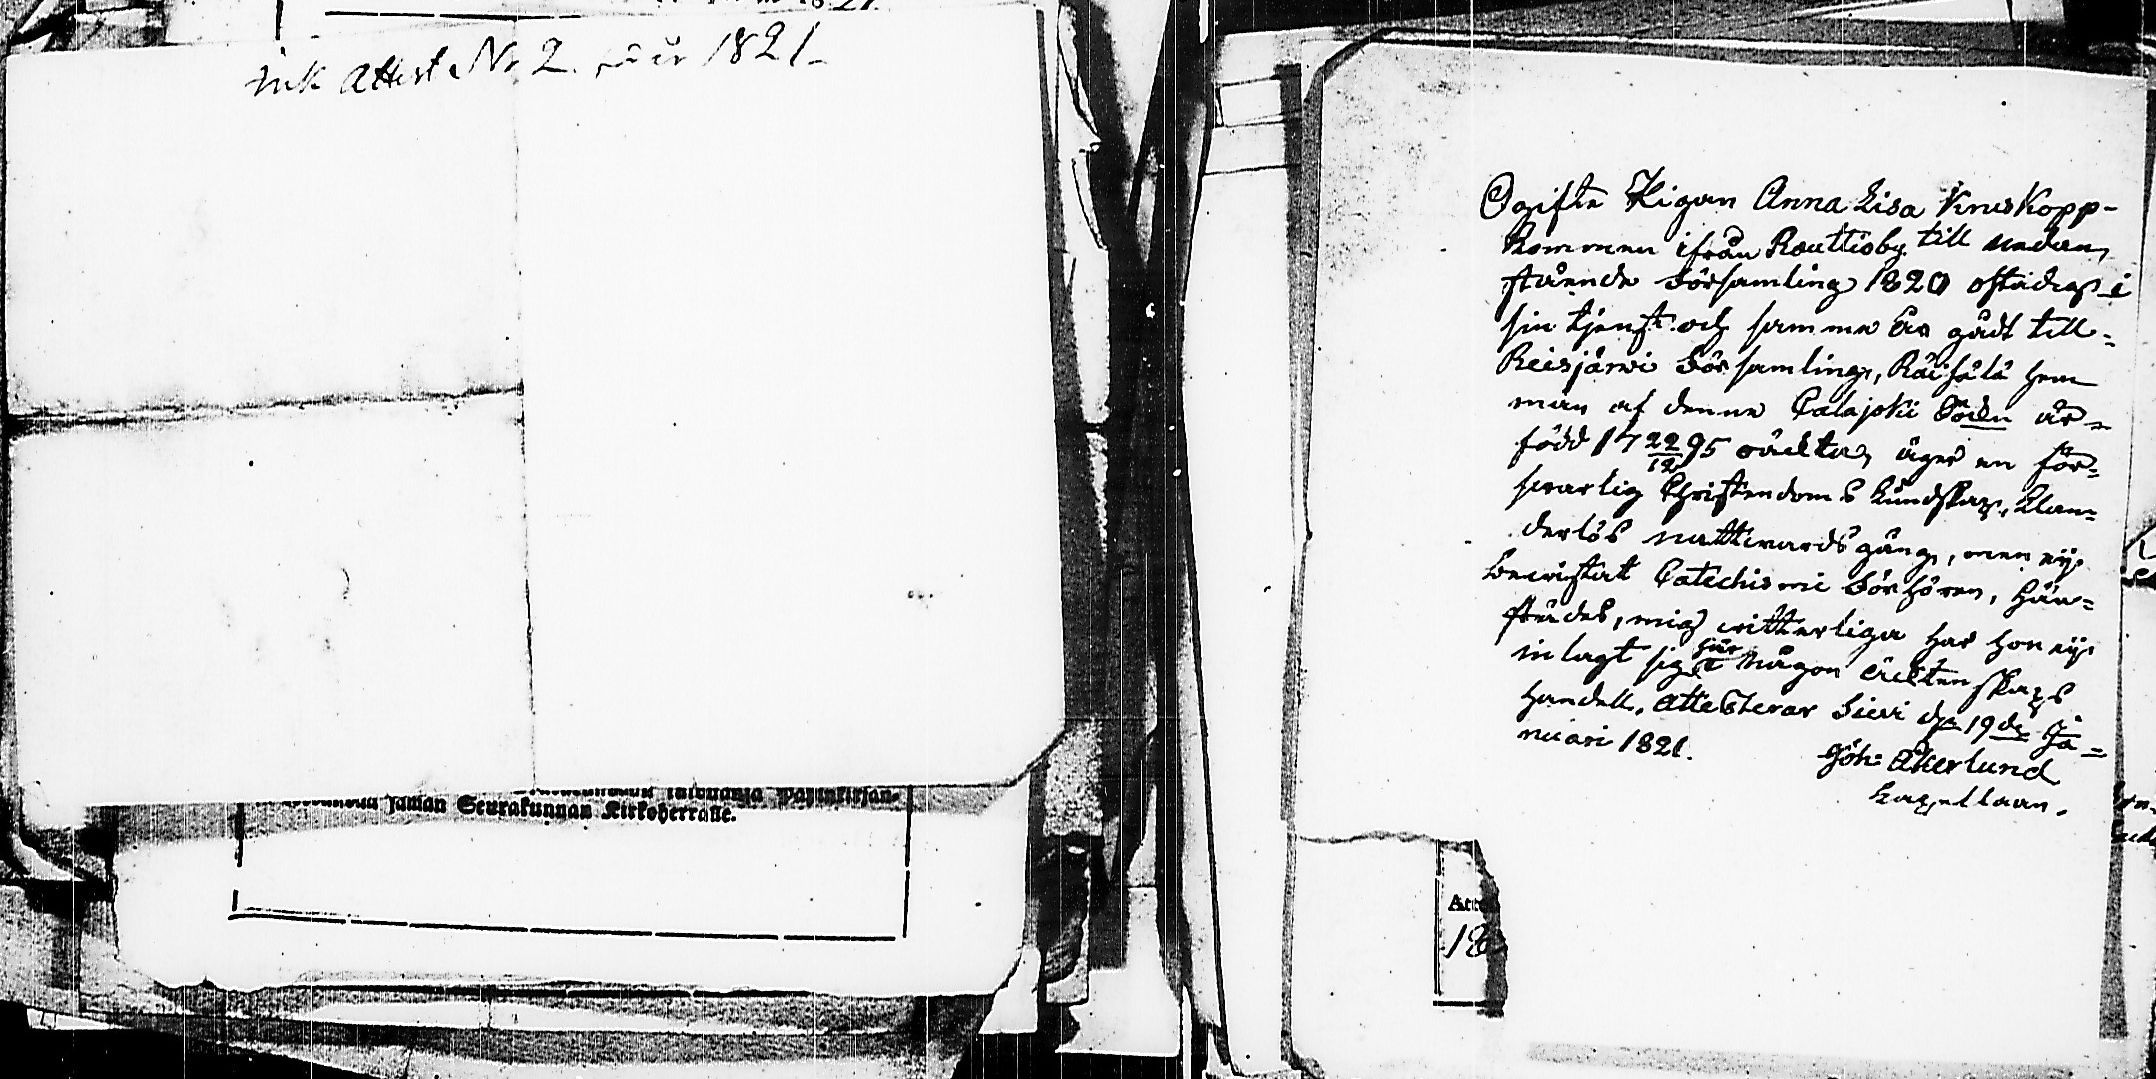 ink Attest No 2. för år 1821.
Seurakunnan
jaman Seurakunnan Kirkoherralle.
Ogifta Pigan Anna Lisa Kruskopp-
kommen ifrån Rautioby till nedan
stående Församling 1820 städes i
sin tjenst och samma år gådt till
Reisjärwi Församling, Räisälä hem
man af denne Calajoki Socken är
född 17 22/12 95 oäckta, äger en för-
swarlig Christendoms kundskap, klan-
derlös nattwardsgång, men ej
bewistat Catechismi Förhören, här-
städes, mig witterliga har hon ej
inlagt sig här i någon äcktenskaps
handell. Attesterar Siewi d. 19de Ja-
nuari 1821.
Joh: Åkerlund
Capellaan.
18